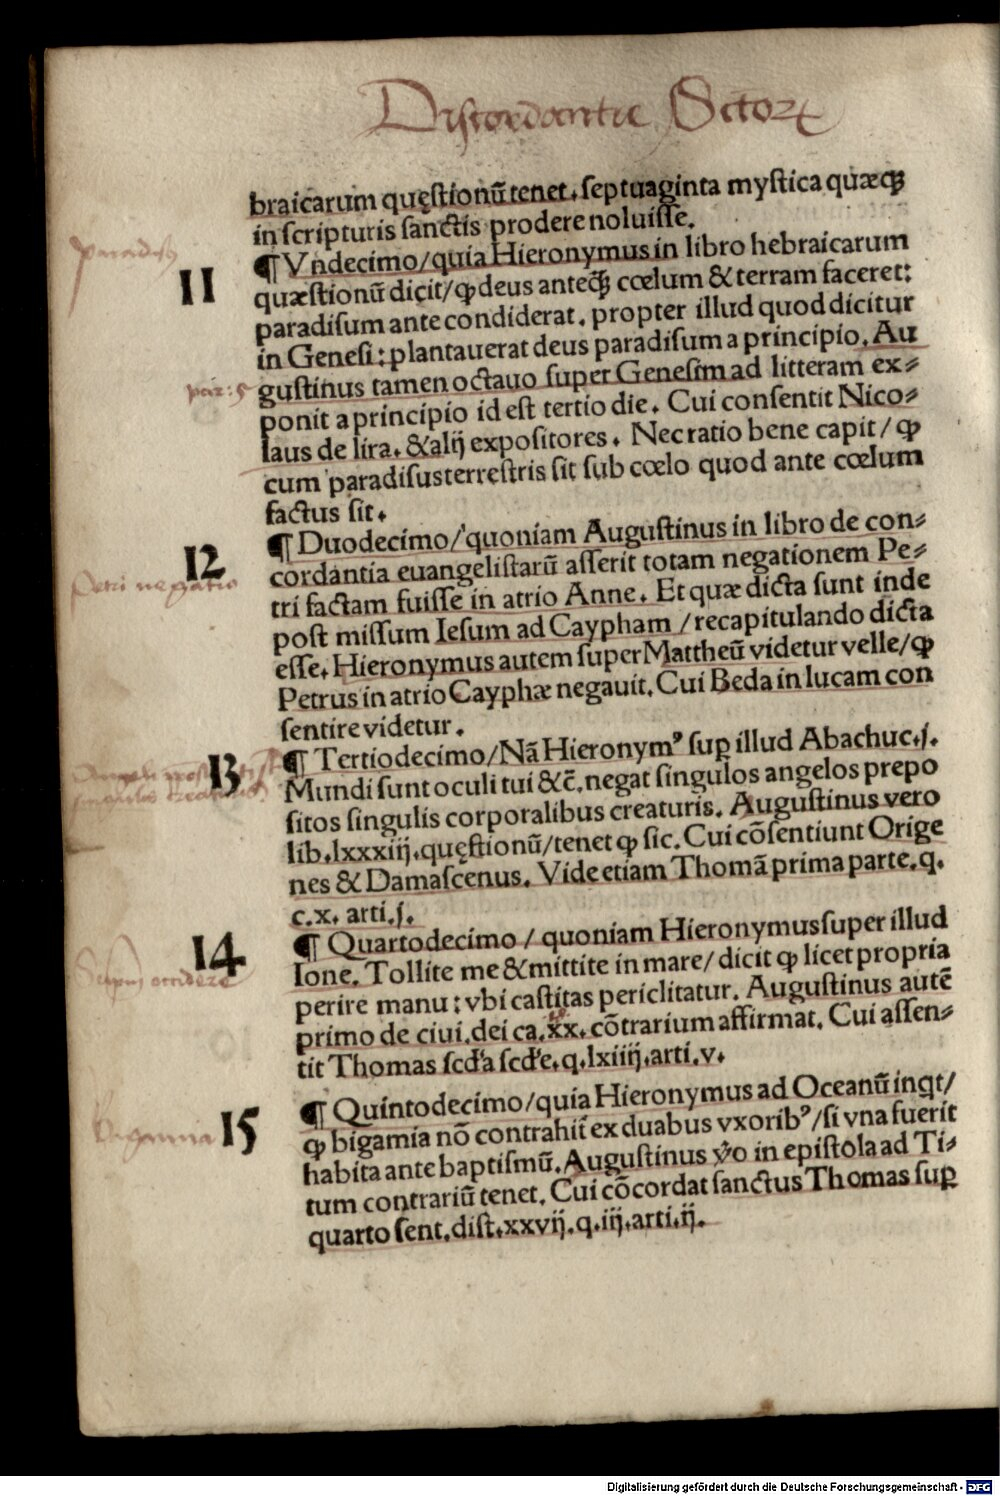 Discordantie Sctoꝝ
braicarum quęstionũ tenet, septuaginta mystica quæqꝫ
in scripturis sanctis prodere noluisse.
paradisꝰ
11
¶ Vndecimo/quia Hieronymus in libro hebraicarum
quæstionũ dicit/ꝙ deus anteqꝫ cœlum & terram faceret:
paradisum ante condiderat, propter illud quod dicitur
in Genesi: plantauerat deus paradisum a principio. Au
gustinus tamen octauo super Genesim ad litteram ex⸗
ponit a principio id est tertio die. Cui consentit Nico⸗
laus de lira, & alij expositores. Nec ratio bene capit/ꝙ
cum paradisus terrestris sit sub cœlo quod ante cœlum
factus sit.
12
Petri negatio
¶ Duodecimo/quoniam Augustinus in libro de con⸗
cordantia euangelistarũ asserit totam negationem Pe⸗
tri factam fuisse in atrio Anne. Et quæ dicta sunt inde
post missum Iesum ad Caypham/recapitulando dicta
esse. Hieronymus autem super Mattheũ videtur velle/ꝙ
Petrus in atrio Cayphæ negauit. Cui Beda in lucam con
sentire videtur.
13
¶ Tertiodecimo/Nã Hieronymꝰ suꝑ illud Abachuc.j.
Mundi sunt oculi tui &c̃. negat singulos angelos prepo
sitos singulis corporalibus creaturis. Augustinus vero
lib.lxxxiij.quęstionũ/tenet ꝙ sic. Cui cõsentiunt Orige
nes & Damascenus. Vide etiam Thomã prima parte.q.
c.x. arti.j.
14
occidere
¶ Quartodecimo/quoniam Hieronymus super illud
Ione. Tollite me & mittite in mare/dicit ꝙ licet propria
perire manu: vbi castitas periclitatur. Augustinus autẽ
primo de ciui.dei ca.xx. cõtrarium affirmat. Cui assen⸗
tit Thomas scd'a scd'e.q.lxiiij.arti.v.
Bigamia
15
¶ Quintodecimo/quia Hieronymus ad Oceanũ inqt/
ꝙ bigamia nõ contrahit̃ ex duabus vxoribꝰ/si vna fuerit
habita ante baptismũ. Augustinus v̓o in epistola ad Ti⸗
tum contrariũ tenet. Cui cõcordat sanctus Thomas suꝑ
quarto sent.dist.xxvij.q.iij.arti.ij.
Digitalisierung gefördert durch die Deutsche Forschungsgemeinschaft - DFG